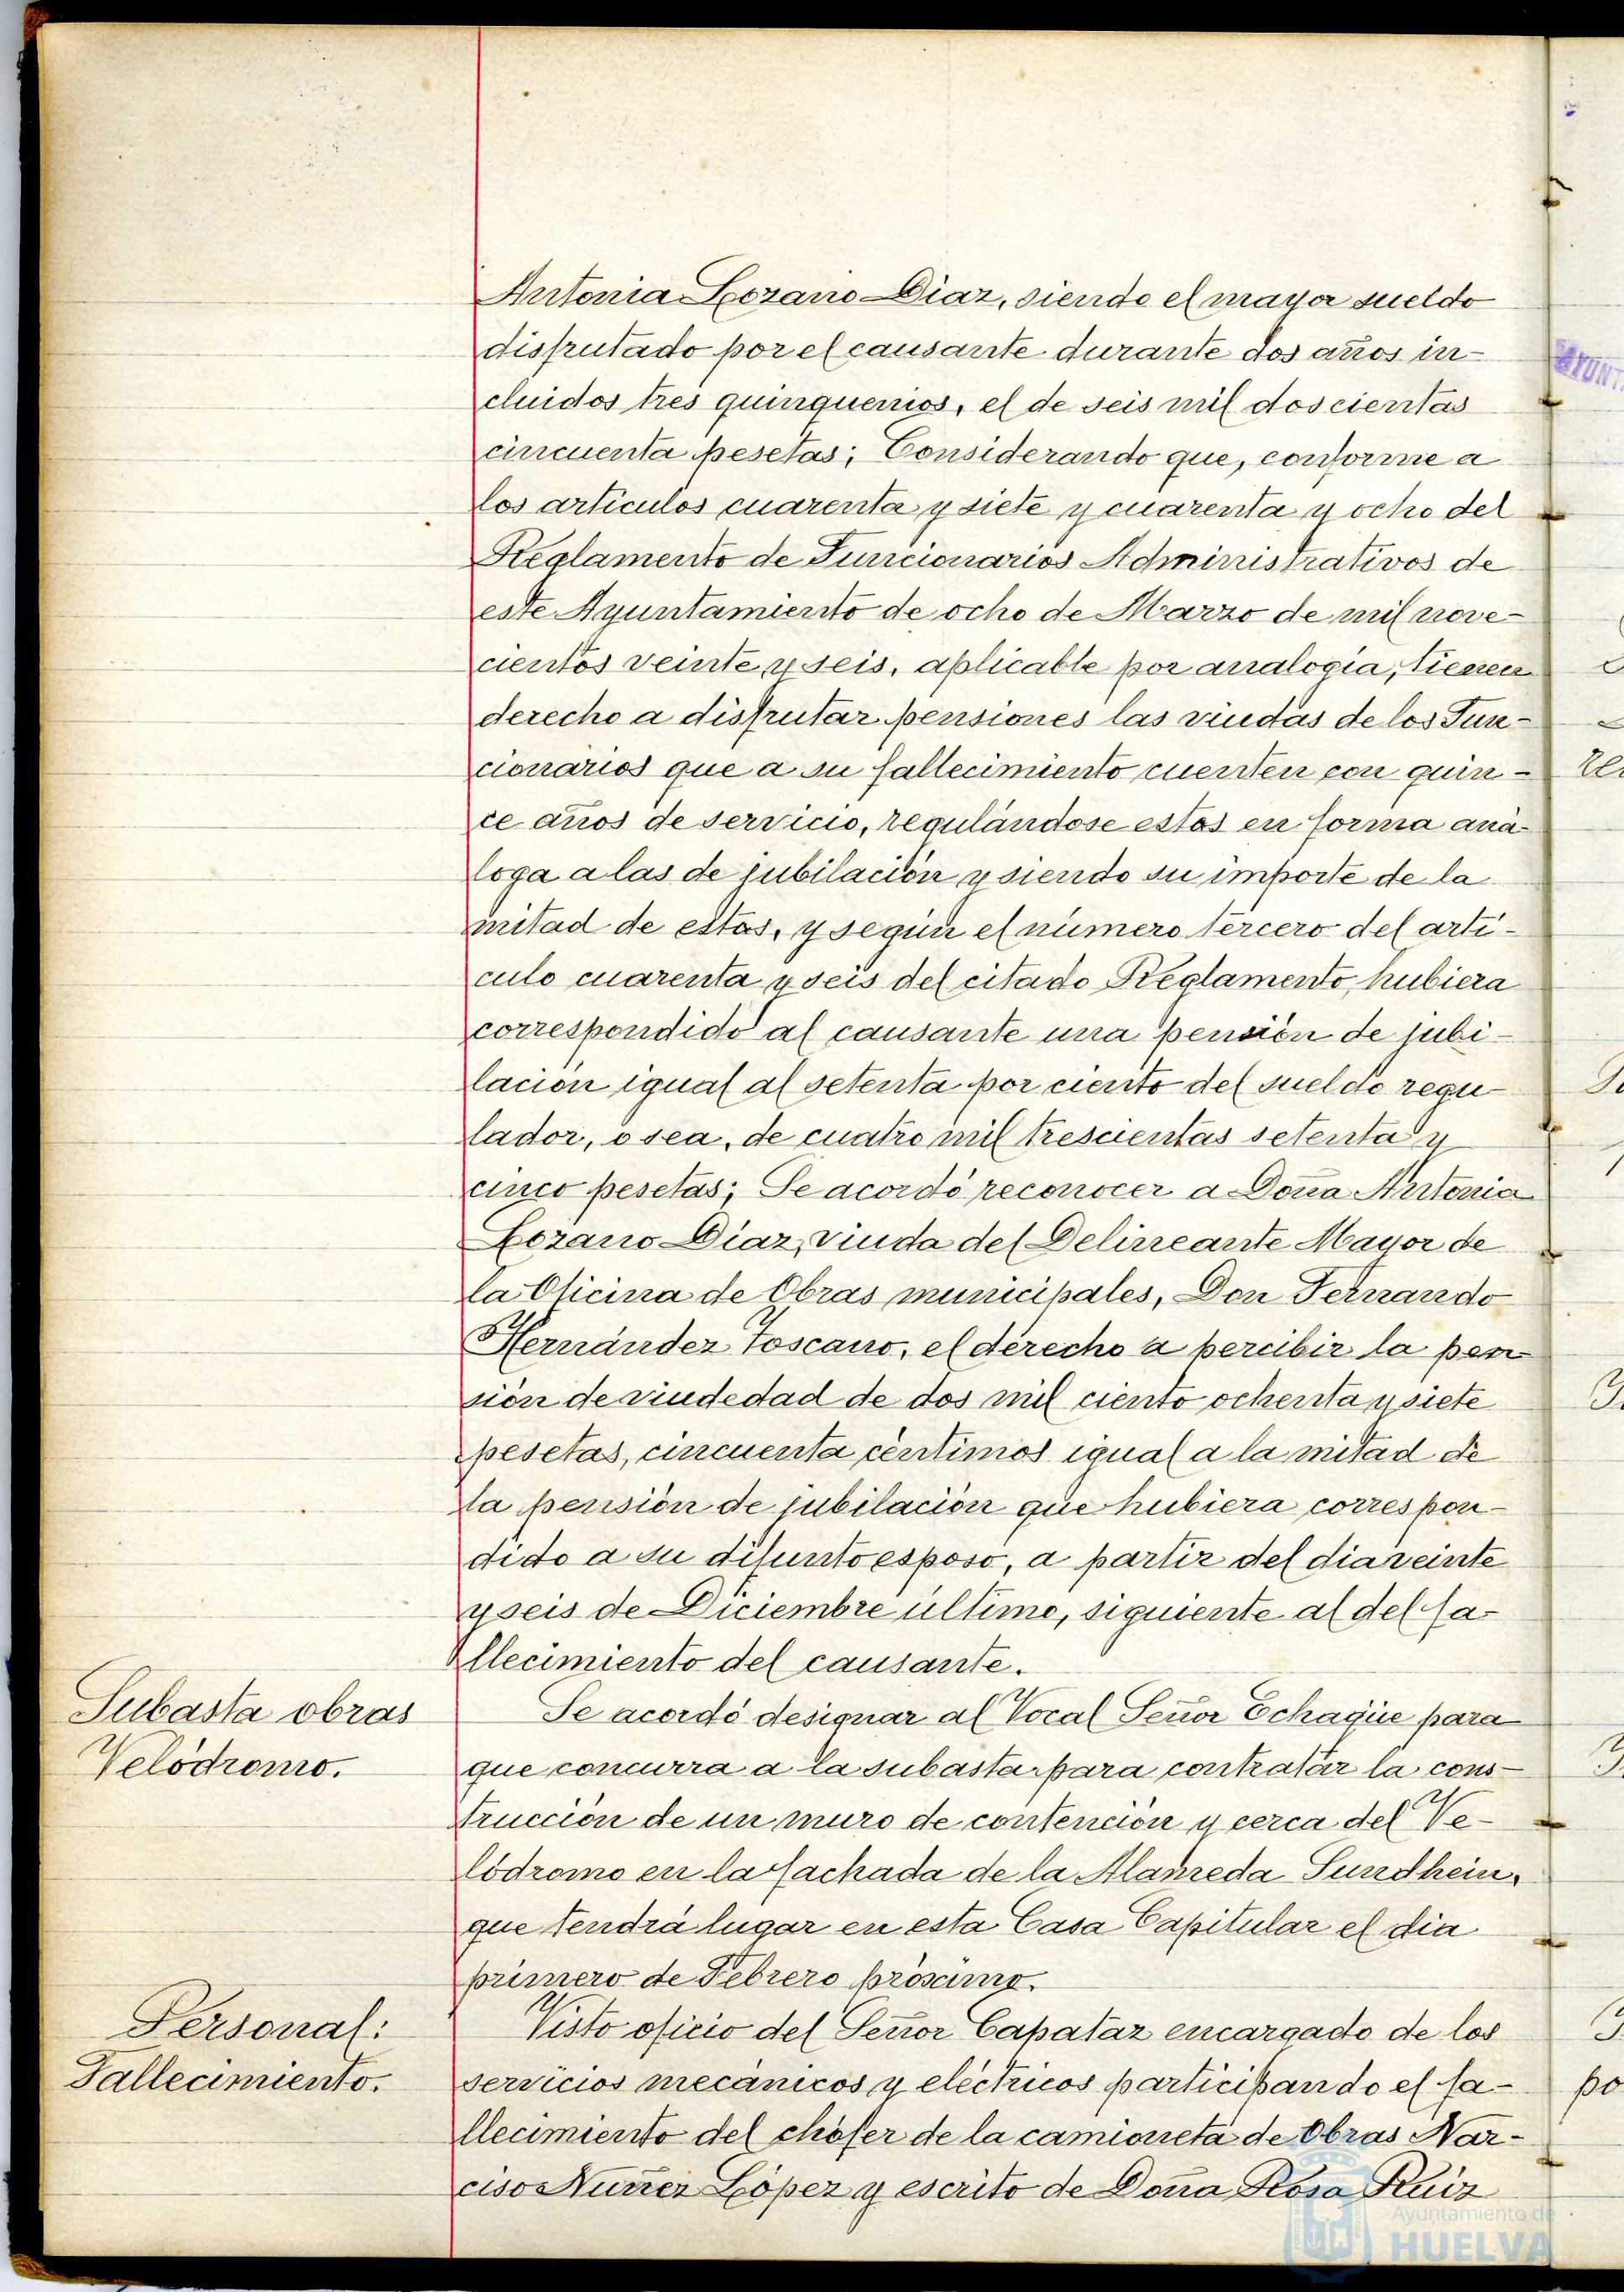 Antonia Lozano Diaz, siendo el mayor sueldo
disfrutado por el causante durante dos años in-
cluidos tres quinquenios, el de seis mil doscientas
cincuenta pesetas; Considerando que, conforme a
los articulos cuarenta y siete y cuarenta y ocho del
Reglamento de Funcionarios Administrativos de
este Ayuntamiento de ocho de Marzo de mil nove-
cientos veinte y seis, aplicable por analogia, tienen
derecho a disfrutar pensiones las viudas de los Fun-
cionarios que a su fallecimiento cuenten con quin-
ce años de servicio, regulándose estas en forma aná-
loga a las de jubilación y siendo su importe de la
mitad de estas, y según el número tercero del artí-
culo cuarenta y seis del citado Reglamento, hubiera
correspondido al causante una pensión de jubi-
lación igual al setenta por ciento del sueldo regu-
lador, o sea, de cuatro mil trescientas setenta y
cinco pesetas; Se acordó reconocer a Doña Antonia
Lozano Díaz, viuda del Delineante Mayor de
la Oficina de Obras municipales, Don Fernando
Hernández Toscano, el derecho a percibir la pen-
sión de viudedad de dos mil ciento ochenta y siete
pesetas, cincuenta céntimos igual a la mitad de
la pensión de jubilación que hubiera correspon-
dido a su difunto esposo, a partir del dia veinte
y seis de Diciembre último, siguiente al del fa-
llecimiento del causante.
Subasta obras
Velódromo.
Se acordó designar al Vocal Señor Echagüe para
que concurra a la subasta para contratar la cons-
trucción de un muro de contención y cerca del Ve-
lódromo en la fachada de la Alameda Sundhein,
que tendrá lugar en esta Casa Capitular el dia
primero de Febrero próximo.
Personal:
Fallecimiento.
Visto oficio del Señor Capataz encargado de los
servicios mecánicos y eléctricos participando el fa-
llecimiento del chófer de la camioneta de Obras Nar-
ciso Nuñez López y escrito de Doña Rosa Ruiz
Ayuntamiento de
HUELVA